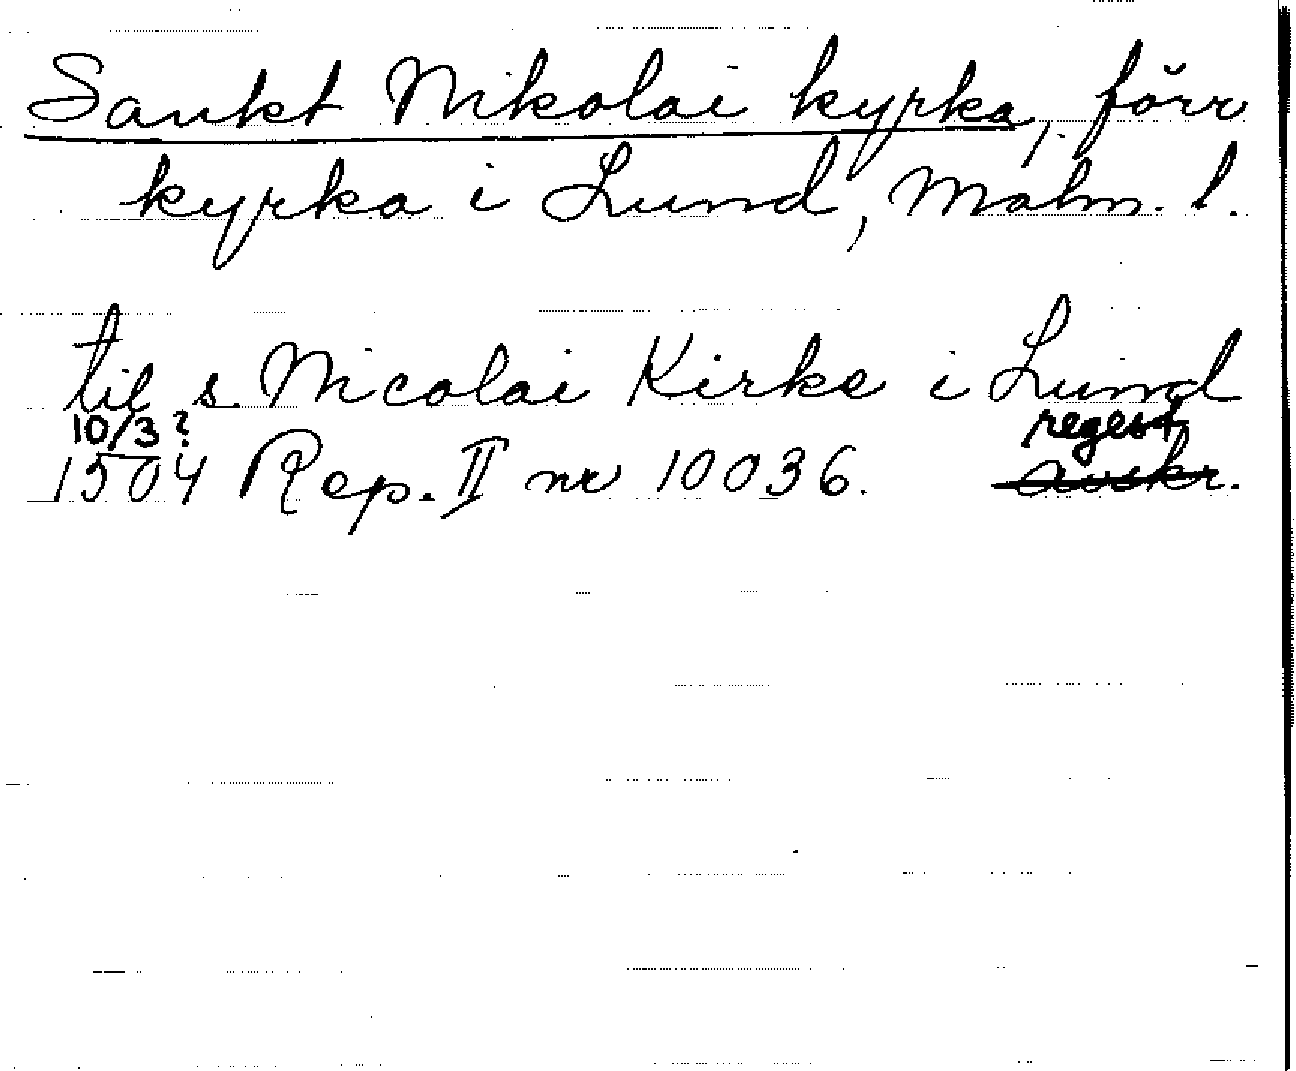 Sankt Nikolai kyrka, förr
kyrka i Lund, Malm. l.
til s. Nicolai Kirke i Lund
10/3? regest
1504 Rep. II nr 10036. avskr.